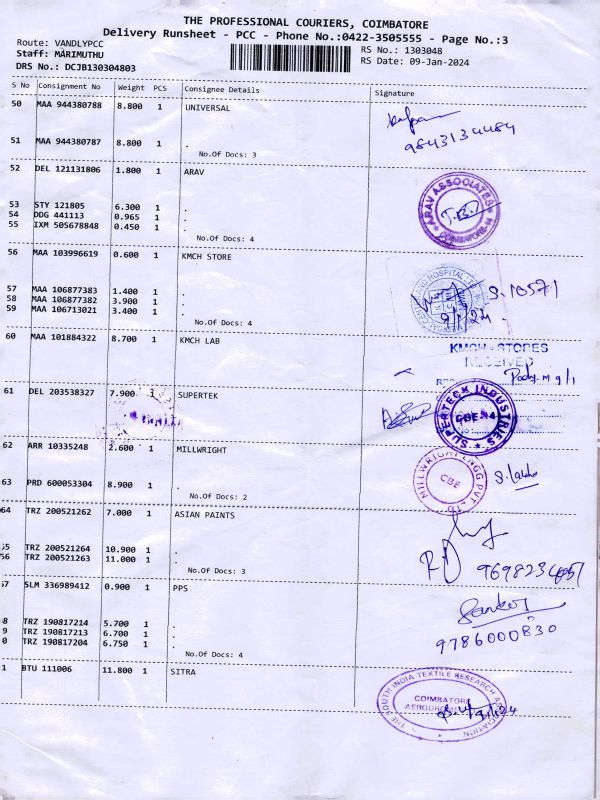 THE PROFESSIONAL COURIERS, COIMBATORE
Delivery Runsheet - PCC - Phone No.:0422-3505555 - Page No.:3
Route: VANDLYPCC
RS No.: 1303048
Staff: MARIMUTHU
RS Date: 09-Jan-2024
DRS No.: DCJB130304803
S No Consignment No Weight PCS Consignee Details Signature
50 MAA 944380788 8.800 1 UNIVERSAL
9843134484
51 MAA 944380787 8.800 1 .
No.Of Docs: 3
52 DEL 121131806 1.800 1 ARAV
ARAV ASSOCIATES
COIMBATORE-14
53 STY 121805 6.300 1 .
54 DDG 441113 0.965 1 .
55 IXM 505678848 0.450 1 .
No.Of Docs: 4
56 MAA 103996619 0.600 1 KMCH STORE
57 MAA 106877383 1.400 1 .
58 MAA 106877382 3.900 1 .
59 MAA 106713021 3.400 1 .
No.Of Docs: 4
S.10571
9/1/24
60 MAA 101884322 8.700 1 KMCH LAB
KMCH-STORES
RECEIVED
61 DEL 203538327 7.900 1 SUPERTEK
SUPERTECK INDUSTRIES
CBE-14
62 ARR 10335248 2.600 1 MILLWRIGHT
MILLWRIGHT ENGG PVT. LTD
CBE
63 PRD 600053304 8.900 1 .
No.Of Docs: 2
64 TRZ 200521262 7.000 1 ASIAN PAINTS
55 TRZ 200521264 10.900 1 .
56 TRZ 200521263 11.000 1 .
No.Of Docs: 3
57 SLM 336989412 0.900 1 PPS
Sankar
9786000830
8 TRZ 190817214 5.700 1 .
9 TRZ 190817213 6.700 1 .
0 TRZ 190817204 6.750 1 .
No.Of Docs: 4
1 BTU 111006 11.800 1 SITRA
THE SOUTH INDIA TEXTILE RESEARCH ASSOCIATION
COIMBATORE
AERODROME